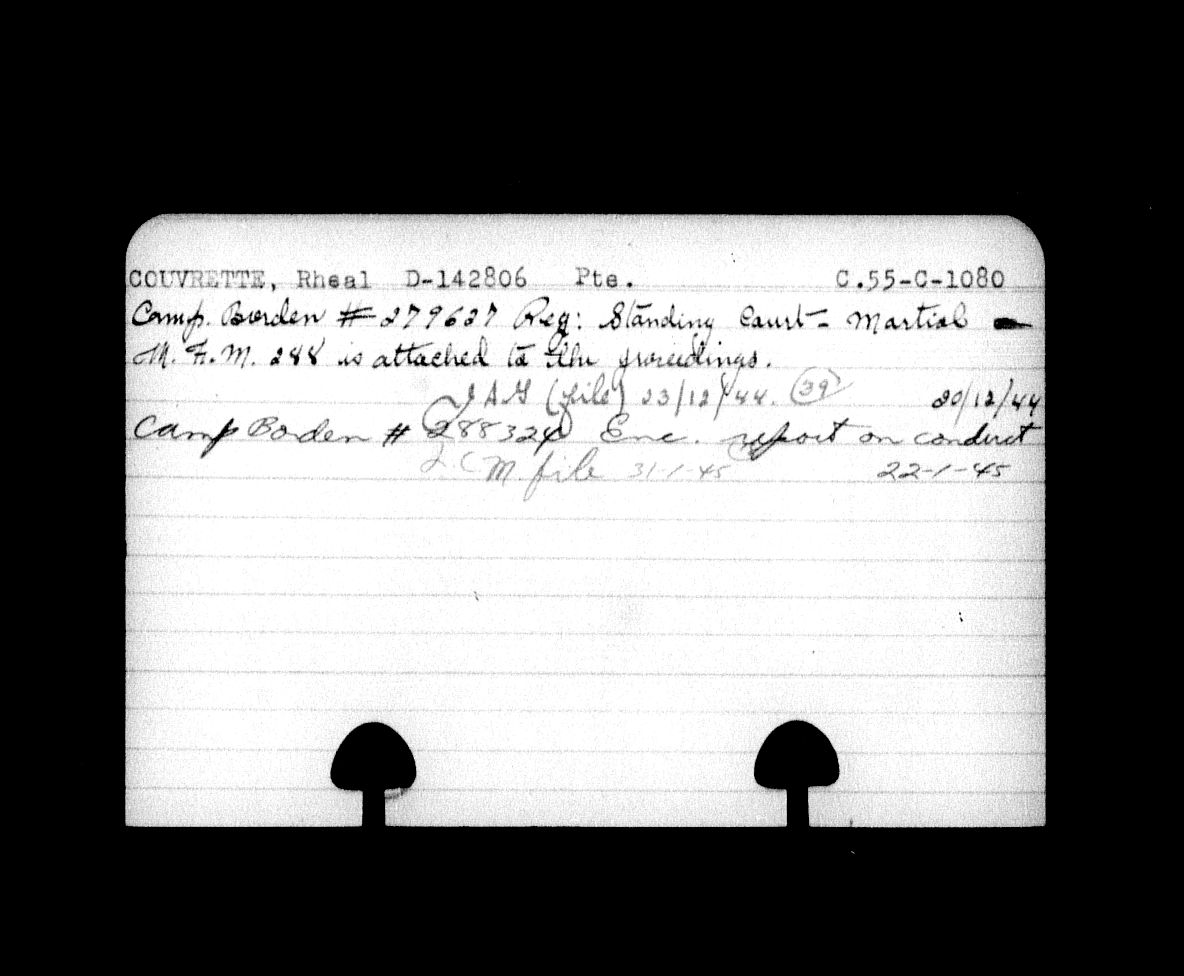 COUVRETTE, Rheal D-142806 Pte. C.55-C-1080
Camp. Borden # 279627 Reg: Standing Court- Martial
M. F. M. 288 is attached to the proceedings.
J A G (file) 23/12/44. (39) 20/12/44
Camp Borden # 288324 Enc. report on conduct
M. file 31-1-45 22-1-45